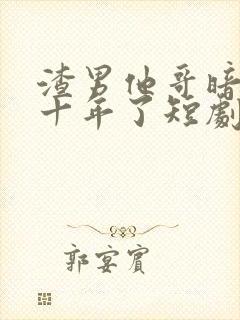 渣男他哥暗
十年了短劇
郭宴賓